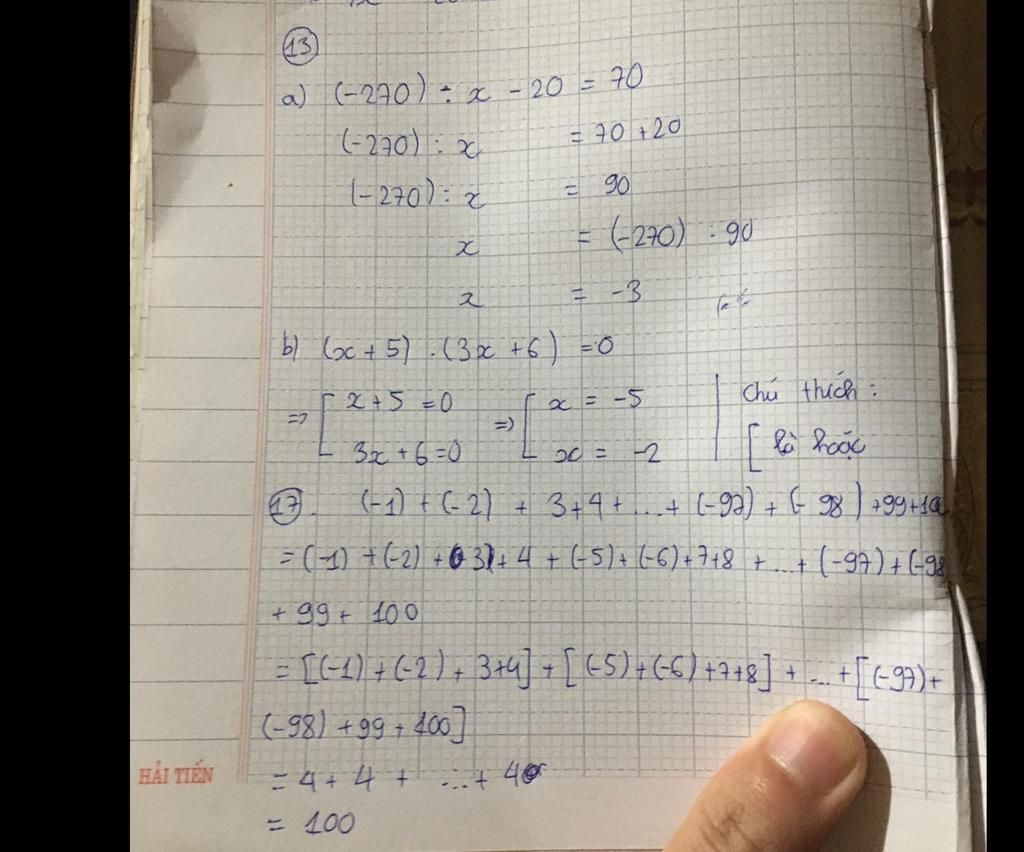 13
a) (-270) : x - 20 = 70
(-270) : x = 70 + 20
(-270) : x = 90
x = (-270) : 90
x = -3
b) (x + 5) . (3x + 6) = 0
=> [ x + 5 = 0 => [ x = -5 | Chú thích :
3x + 6 = 0 x = -2 | [ là hoặc
17. (-1) + (-2) + 3 + 4 + ... + (-97) + (-98) + 99 + 10
= (-1) + (-2) + 3 + 4 + (-5) + (-6) + 7 + 8 + ... + (-97) + (-98
+ 99 + 100
= [(-1) + (-2) + 3 + 4] + [(-5) + (-6) + 7 + 8] + ... + [(-97) +
(-98) + 99 + 100]
HẢI TIẾN
= 4 + 4 + ... + 4
= 100